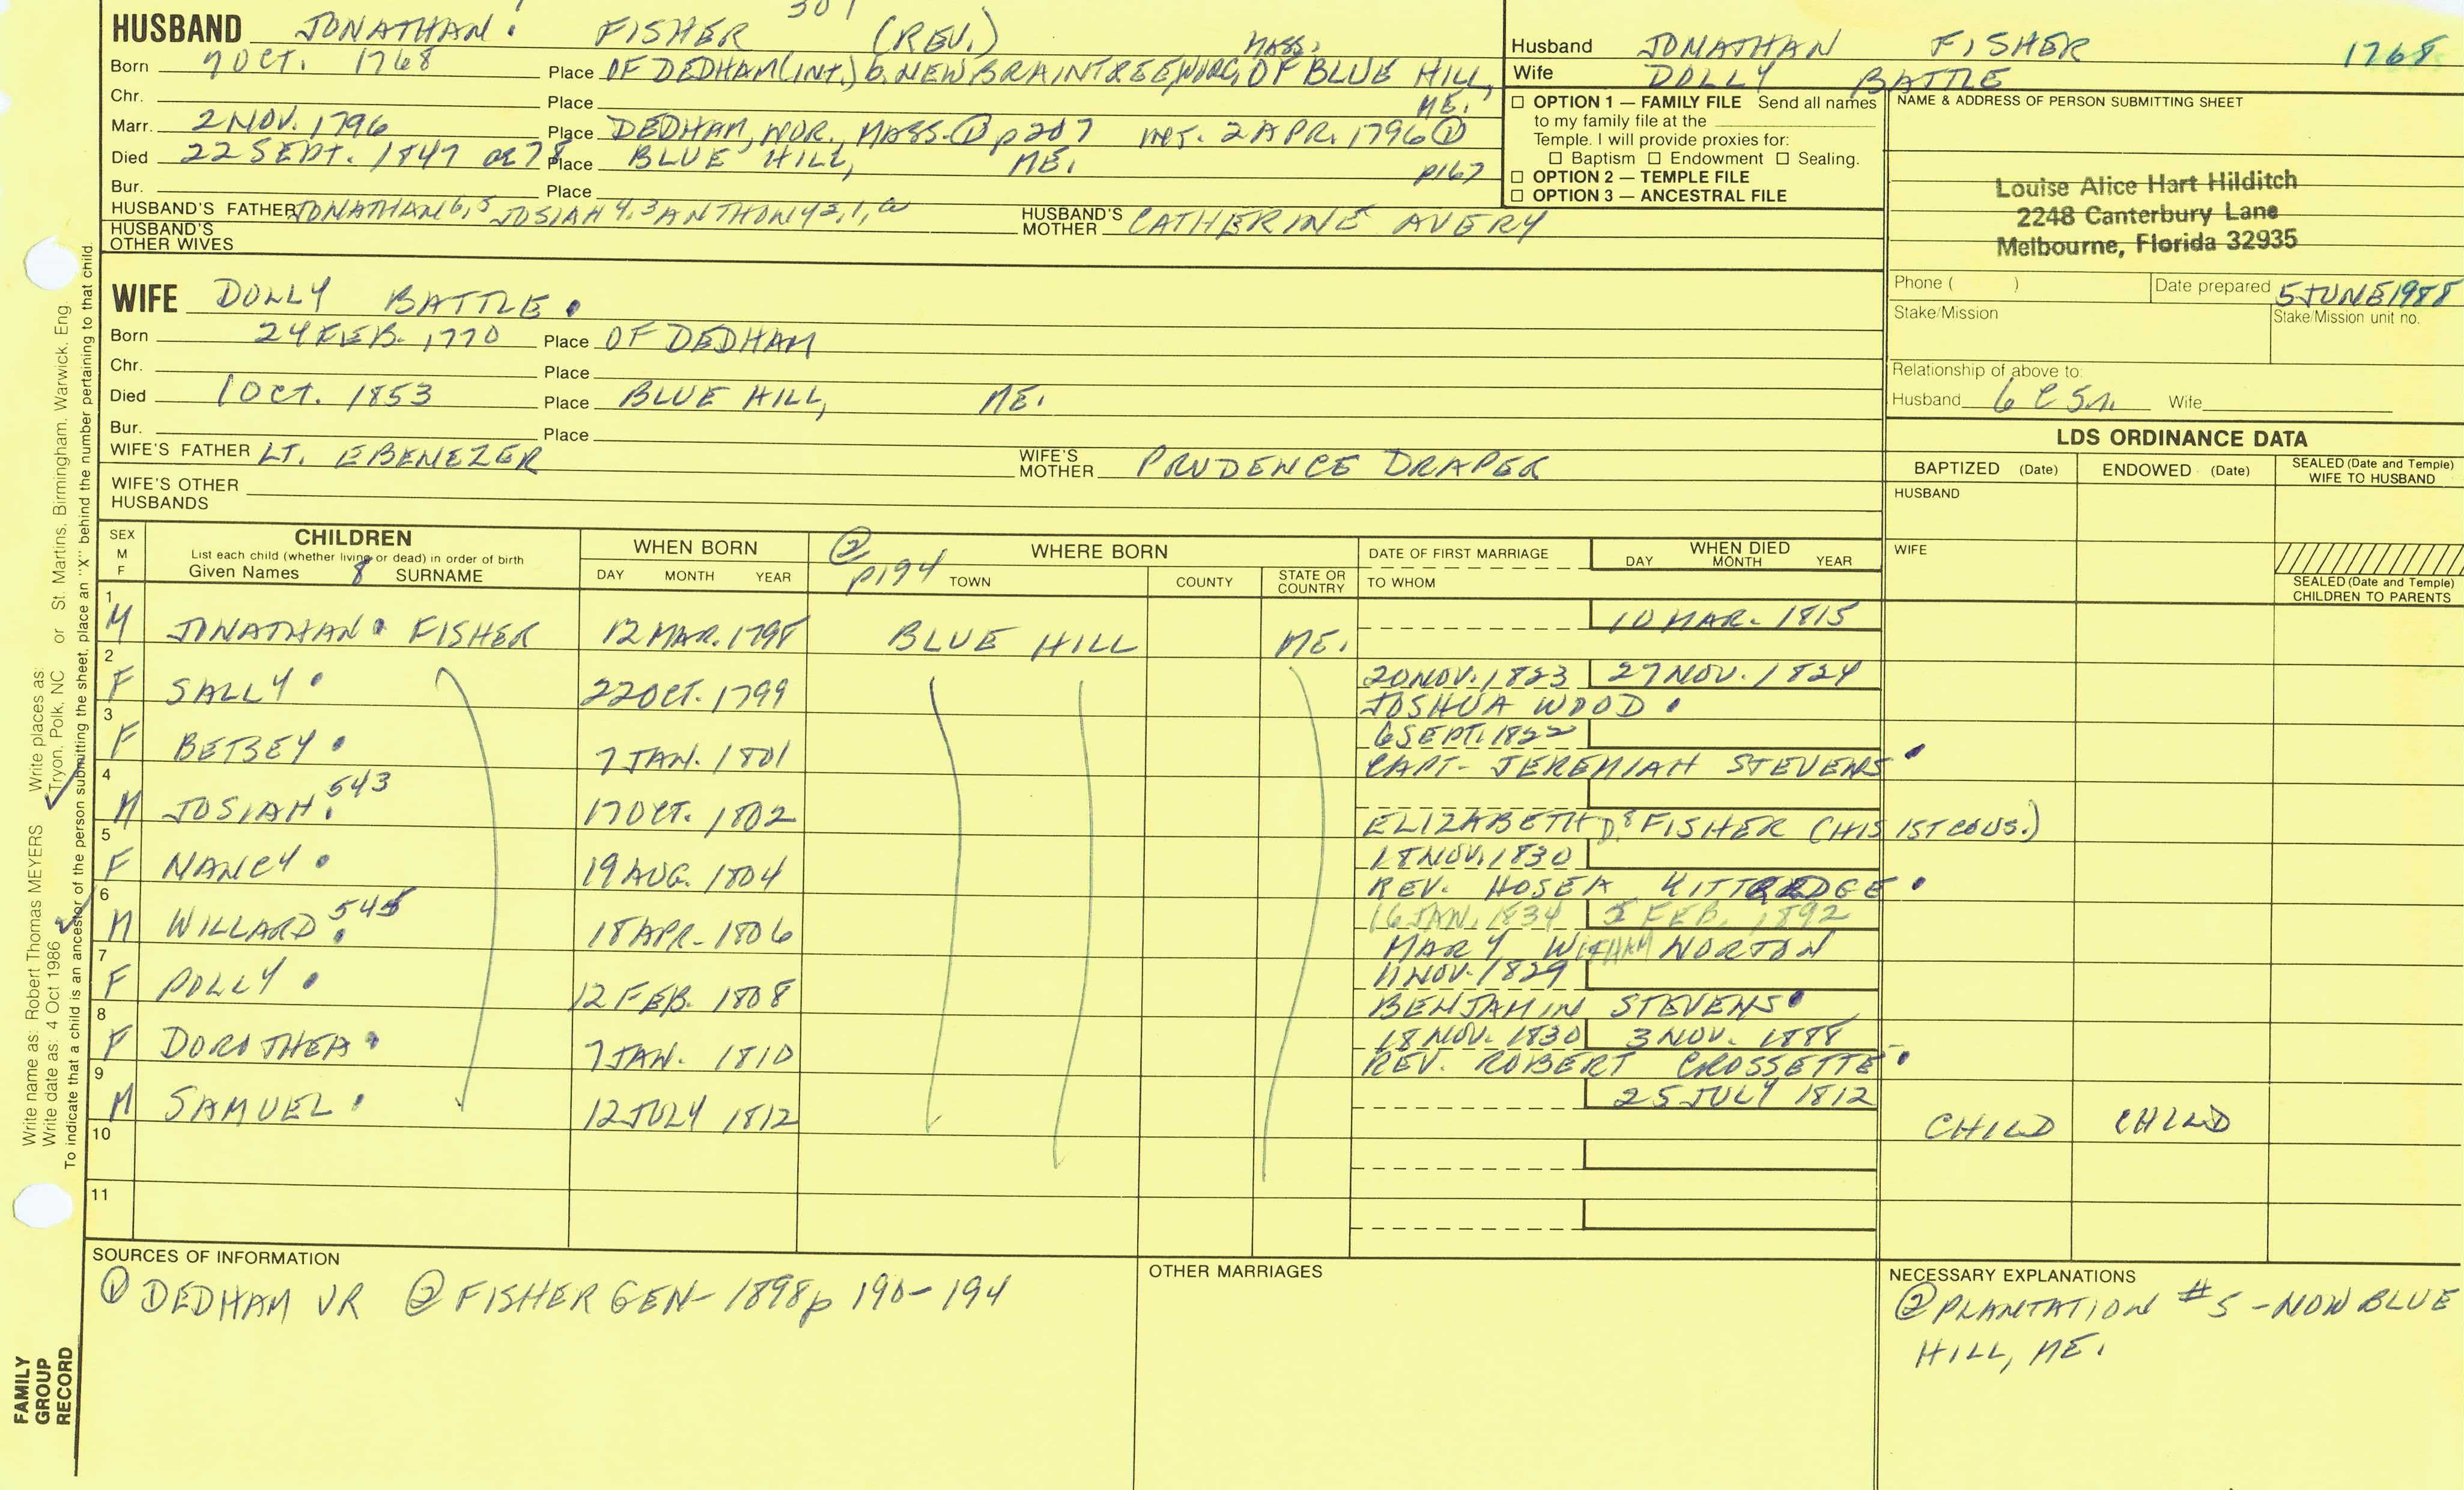 HUSBAND JONATHAN. FISHER (REV.) 301
Born 7 OCT. 1768 Place OF DEDHAM (INT.) b. NEW BRAINTREE, WORC, MASS. OF BLUE HILL, ME.
Chr. Place
Marr. 2 NOV. 1796 Place DEDHAM, WOR., MASS. ① p 207 INT. 2 APR. 1796 ① p167
Died 22 SEPT. 1847 OR 78 Place BLUE HILL, ME.
Bur. Place
HUSBAND'S FATHER JONATHAN 6,5 JOSIAH 4,3 ANTHONY 2,1, HUSBAND'S MOTHER CATHERINE AVERY
HUSBAND'S OTHER WIVES
WIFE DOLLY BATTLE.
Born 24 FEB. 1770 Place OF DEDHAM
Chr. Place
Died 1 OCT. 1853 Place BLUE HILL, ME.
Bur. Place
WIFE'S FATHER LT. EBENEZER WIFE'S MOTHER PRUDENCE DRAPER
WIFE'S OTHER HUSBANDS
Husband JONATHAN FISHER 1768
Wife DOLLY BATTLE
☐ OPTION 1 — FAMILY FILE Send all names
to my family file at the
Temple. I will provide proxies for:
☐ Baptism ☐ Endowment ☐ Sealing.
☐ OPTION 2 — TEMPLE FILE
☐ OPTION 3 — ANCESTRAL FILE
NAME & ADDRESS OF PERSON SUBMITTING SHEET
Louise Alice Hart Hilditch
2248 Canterbury Lane
Melbourne, Florida 32935
Phone ( ) Date prepared 5 JUNE 1988
Stake/Mission Stake/Mission unit no.
Relationship of above to:
Husband 6 C 5 Wife
LDS ORDINANCE DATA
BAPTIZED (Date) ENDOWED (Date) SEALED (Date and Temple) WIFE TO HUSBAND
HUSBAND
WIFE
SEALED (Date and Temple) CHILDREN TO PARENTS
SEX M F
CHILDREN
List each child (whether living or dead) in order of birth
Given Names 8 SURNAME
WHEN BORN
DAY MONTH YEAR
② p194
WHERE BORN
TOWN COUNTY STATE OR COUNTRY
DATE OF FIRST MARRIAGE
TO WHOM
WHEN DIED
DAY MONTH YEAR
1 M JONATHAN. FISHER 12 MAR. 1798 BLUE HILL ME. 10 MAR. 1815
2 F SALLY. 22 OCT. 1799 20 NOV. 1823 27 NOV. 1824
JOSHUA WOOD.
3 F BETSEY. 7 JAN. 1801 6 SEPT. 1822
CAPT. JEREMIAH STEVENS.
4 M JOSIAH. 543 17 OCT. 1802
ELIZABETH D. FISHER (HIS 1ST COUS.)
5 F NANCY. 19 AUG. 1804 18 NOV. 1830
REV. HOSEA KITTREDGE.
6 M WILLARD. 545 18 APR. 1806 16 JAN. 1834 5 FEB. 1892
MARY WITHAM NORTON
7 F POLLY. 12 FEB. 1808 11 NOV. 1829
BENJAMIN STEVENS.
8 F DOROTHEA. 7 JAN. 1810 18 NOV. 1830 3 NOV. 1888
REV. ROBERT CROSSETTE.
9 M SAMUEL. 12 JULY 1812 25 JULY 1812 CHILD CHILD
10
11
SOURCES OF INFORMATION
① DEDHAM VR ② FISHER GEN- 1898 p 190-194
OTHER MARRIAGES
NECESSARY EXPLANATIONS
② PLANTATION #5 - NOW BLUE
HILL, ME.
Write name as: Robert Thomas MEYERS Write places as: Tryon, Polk, NC or St. Martins, Birmingham, Warwick, Eng
Write date as: 4 Oct 1986
To indicate that a child is an ancestor of the person submitting the sheet, place an "X" behind the number pertaining to that child.
FAMILY
GROUP
RECORD